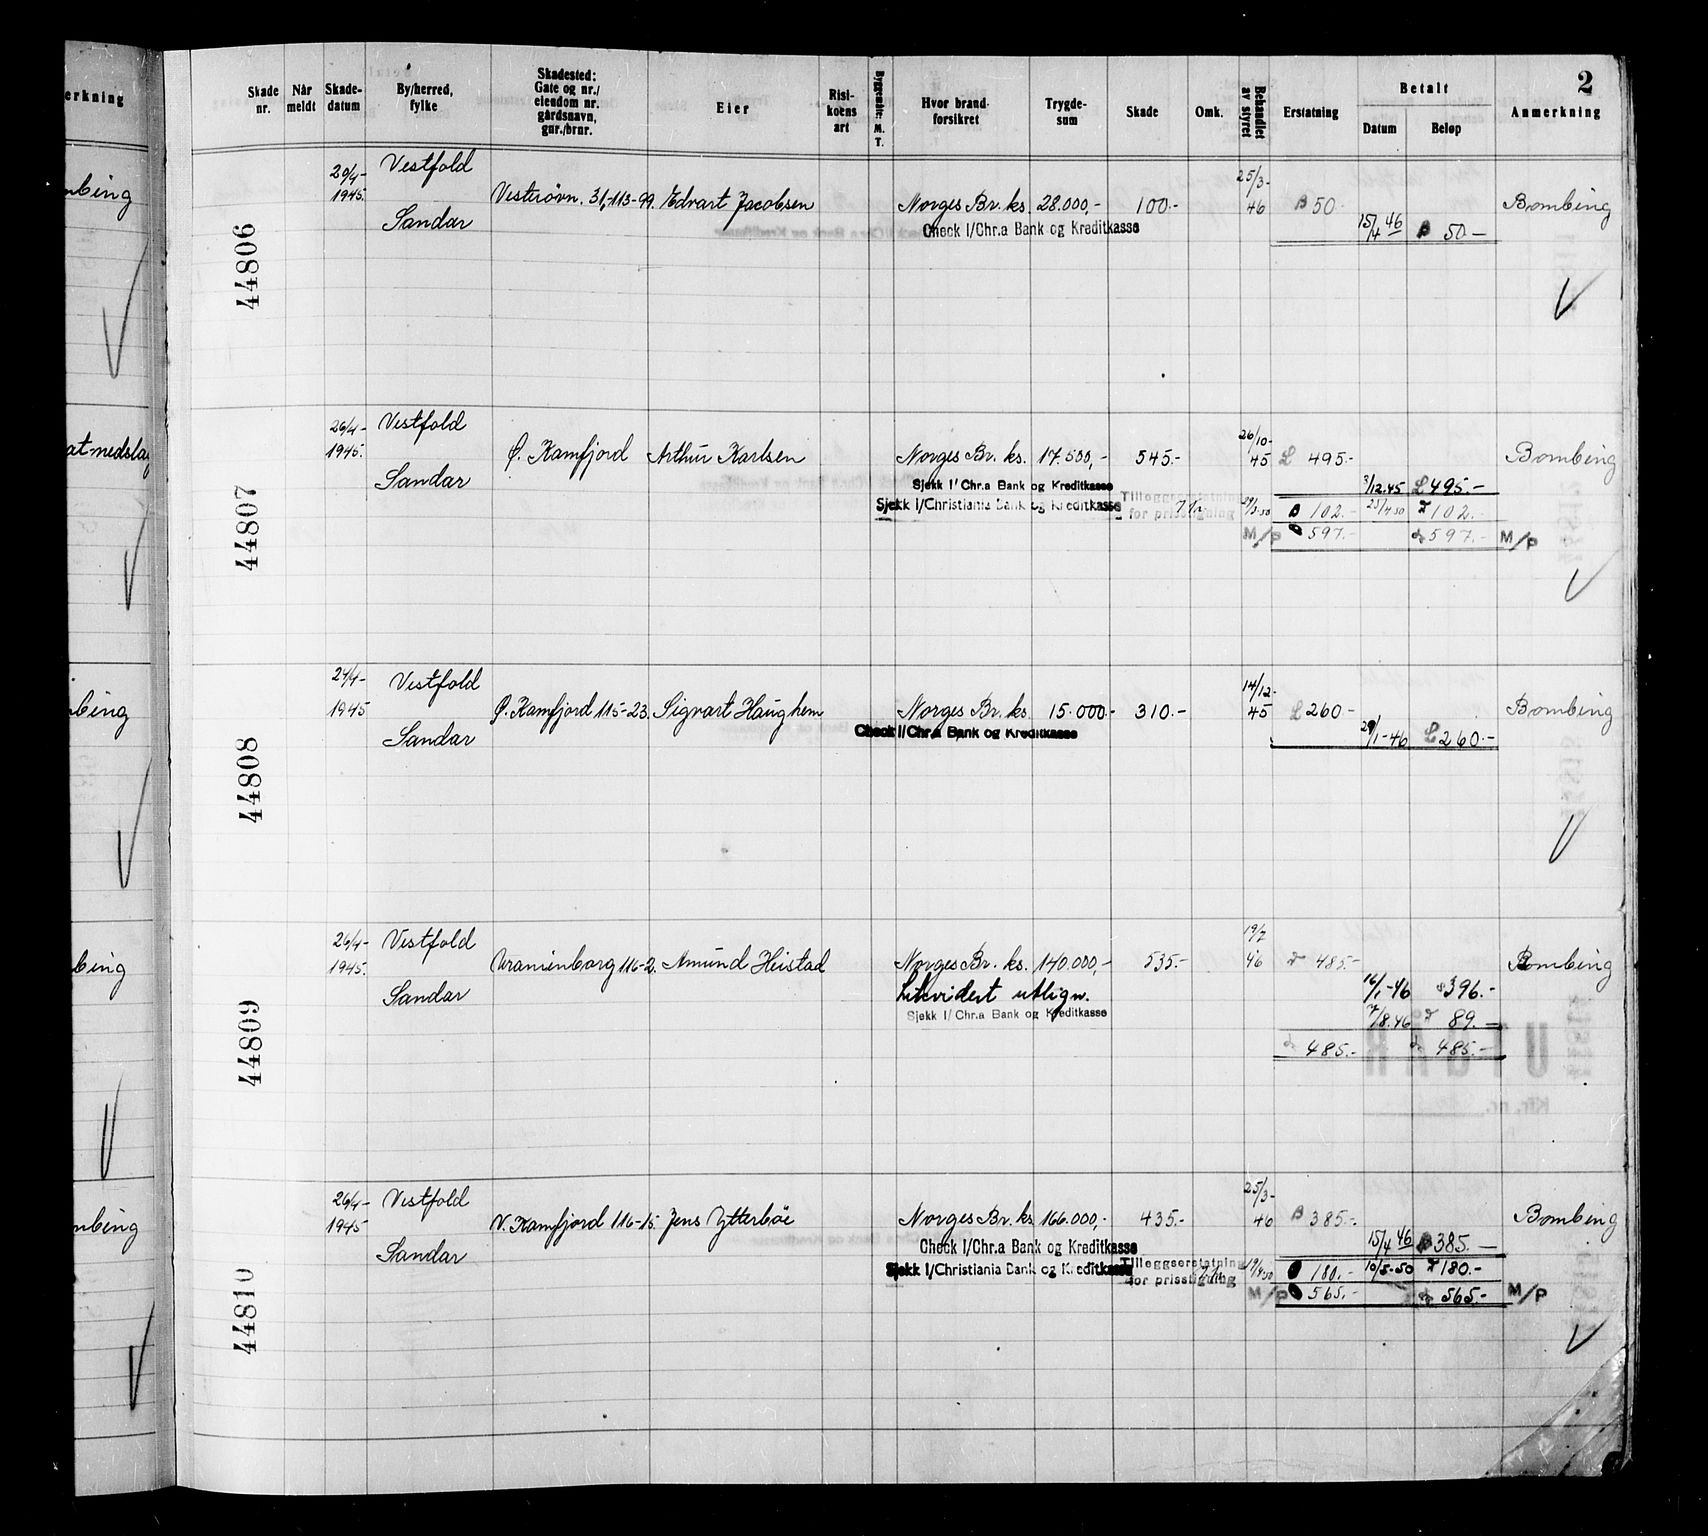 erkning
mbing
at-nedslag
bing
bing
mbing
2
Skade nr.
Når meldt
Skade-datum
By/herred, fylke
Skadested: Gate og nr./ eiendom nr. gårdsnavn, gnr./brnr.
Eier
Risi-koens art
Byggemåte: M. T.
Hvor brand-forsikret
Trygde-sum
Skade
Omk.
Behandlet av styret
Erstatning
Betalt
Datum
Beløp
Anmerkning
44806
20/4- Vestfold 25/3-
1945. Vesterøvn. 31,-113-99. Edvart Jacobsen Norges Br. ks. 28.000,- 100.- 46 B 50 Bombing
Sandar Check I/Chr.a Bank og Kreditkasse 15/4 46 B 50 -
44807
26/4- Vestfold 26/10-
1945. Ø. Kamfjord Arthur Karlsen Norges Br. ks. 17.500,- 545.- 45 L 495.- Bombing
Sandar Sjekk I/Chr.a Bank og Kreditkasse 3/12.45 L 495.-
Sjekk I/Christiania Bank og Kreditkasse Tilleggserstatning for prisstigning 102.- 25/4 50 102.-
M/P 597.- 597.- M/P
44808
24/4- Vestfold 14/12-
1945 Ø. Kamfjord 115-23. Sigvart Haughem Norges Br. ks. 15.000.- 310.- 45 L 260- Bombing
Sandar Check I/Chr.a Bank og Kreditkasse 29/1-46 L 260.-
44809
26/4- Vestfold 19/7
1945. Uranienborg 116-2. Amund Heistad Norges Br. ks. 140.000,- 535.- 46 485.- Bombing
Sandar Likvidert utlign. 16/1-46 396.-
Sjekk I/Chr.a Bank og Kreditkasse 7/8.46 89.-
485.- 485.-
44810
26/4- Vestfold 25/3-
1945 V. Kamfjord 116-15. Jens Ytterbøe Norges Br. ks. 166.000,- 435.- 46 B 385.- Bombing
Sandar Check I/Chr.a Bank og Kreditkasse 15/4 46 B 385. -
Sjekk I/Christiania Bank og Kreditkasse Tilleggserstatning for prisstigning 19/4 50 180.- 10/5-50 180.-
M/P 565.- 565.- M/P